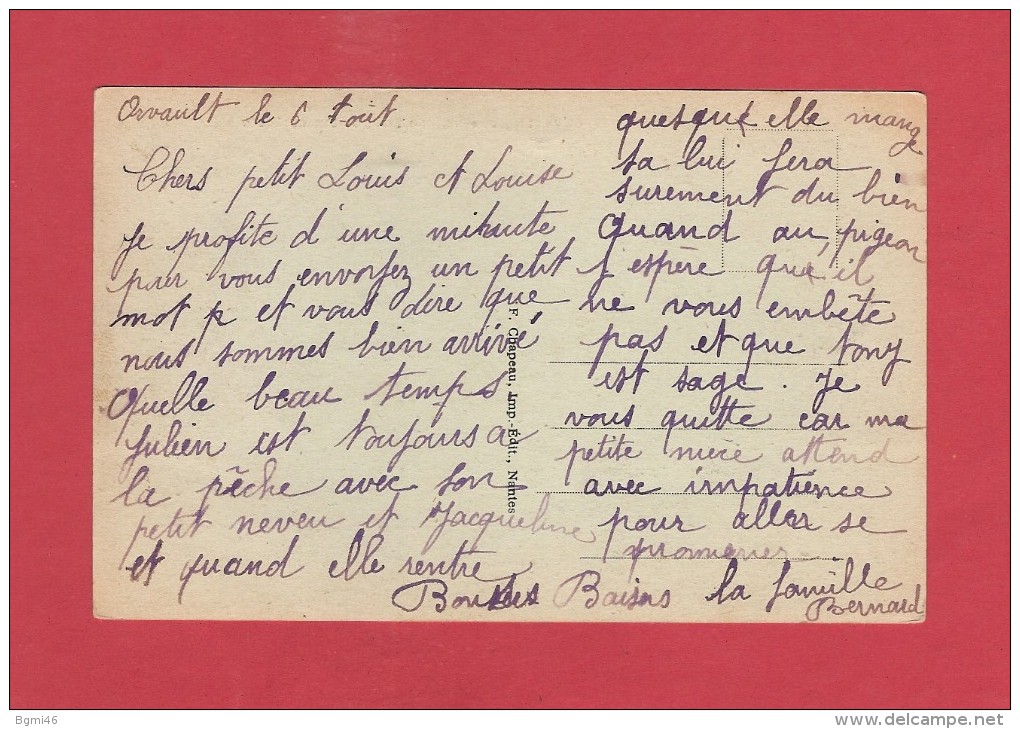 Orvault le 6 Aout
Chers petit Louis et Louise
je profite d'une minute
pour vous envoyez un petit
mot p et vous dire que
nous sommes bien arrivé
Quelle beau temps
Julien est toujours a
la pêche avec son
petit neveu et Jacqueline
et quand elle rentre
quesque elle mange
sa lui fera
surement du bien
Quand au pigeon
j espère que il
ne vous embête
pas et que tony
est sage. Je
vous quitte car ma
petite mère attend
avec impatience
pour aller se
promener
Bonnes Baisers la famille
Bernard
F. Chapeau, Imp.-Édit., Nantes
Bgmi46
www.delcampe.net